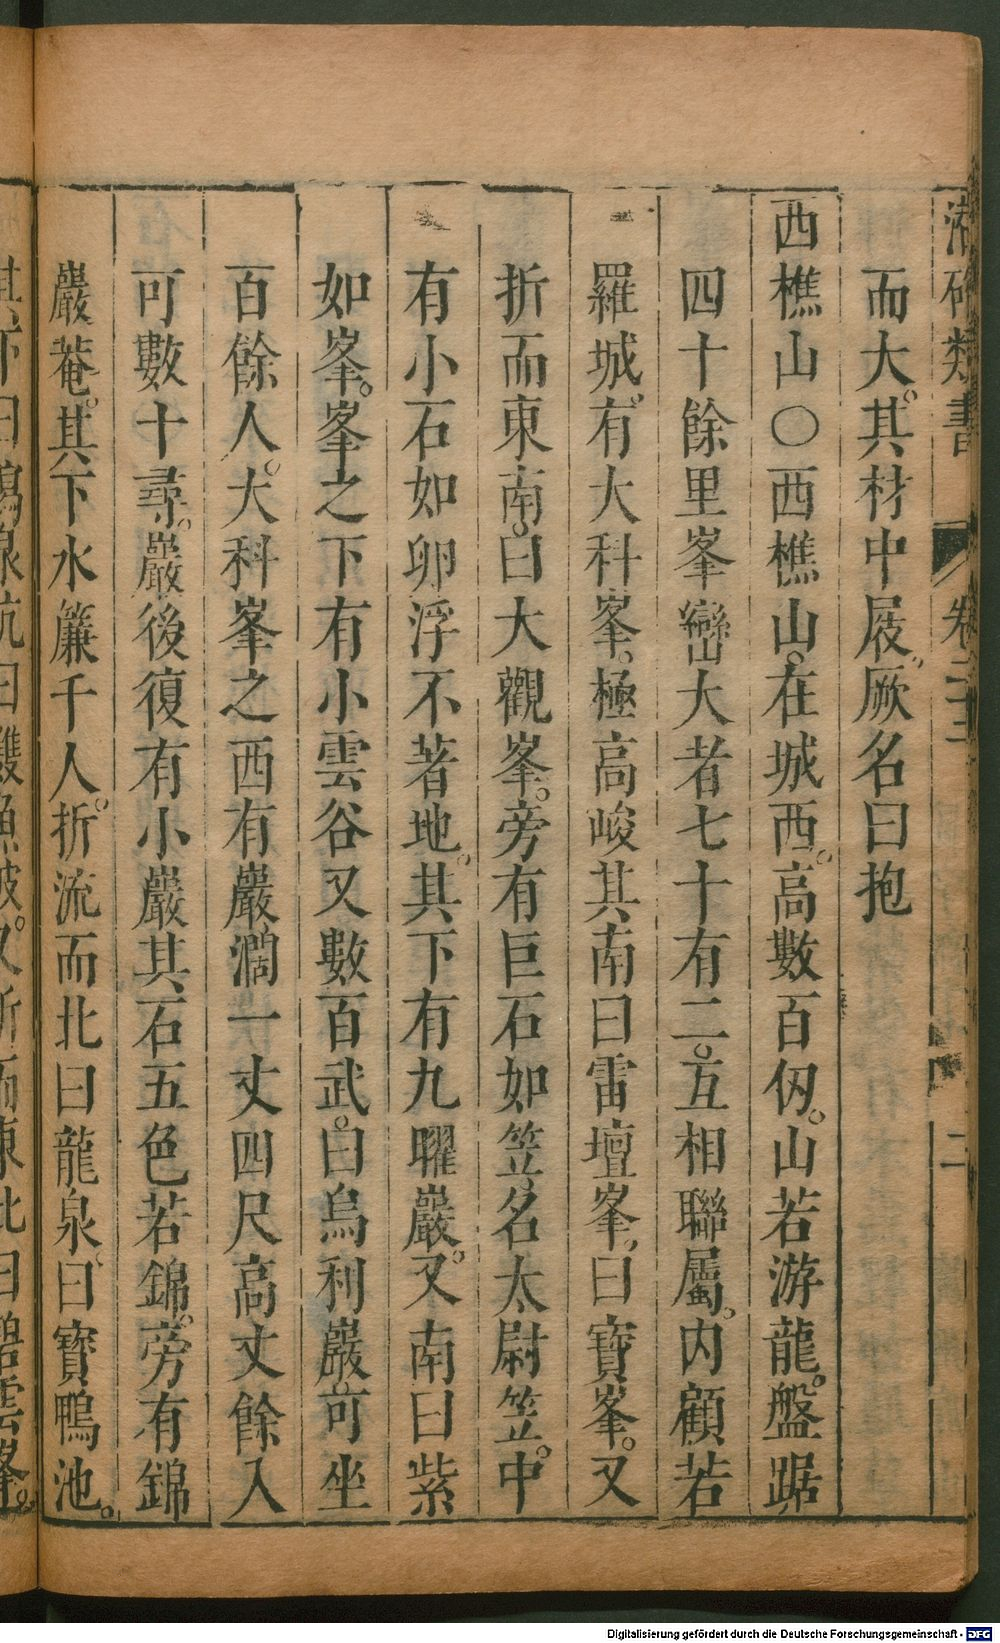 潜确類書 卷二三 二
而大。其材中屐。厥名曰抱
西樵山〇西樵山。在城西。高數百仭。山若游龍。盤踞
四十餘里峯巒大者七十有二。互相聯屬。内顧若
羅城。有大科峯。極高峻其南曰雷壇峯。曰寶峯。又
折而東南。曰大觀峯。旁有巨石如笠。名太尉笠。中
有小石如卵浮不著地。其下有九曜巖。又南曰紫
如峯。峯之下有小雲谷又數百武。曰烏利巖可坐
百餘人。大科峯之西有巖濶一丈四尺高丈餘入
可數十尋。巖後復有小巖其石五色若錦。旁有錦
巖菴。其下水簾千人。折流而北曰龍泉。曰寶鴨池。
其下曰鳴泉坑曰雙魚陂。又折而東北曰碧雲峯。
Digitalisierung gefördert durch die Deutsche Forschungsgemeinschaft - DFG